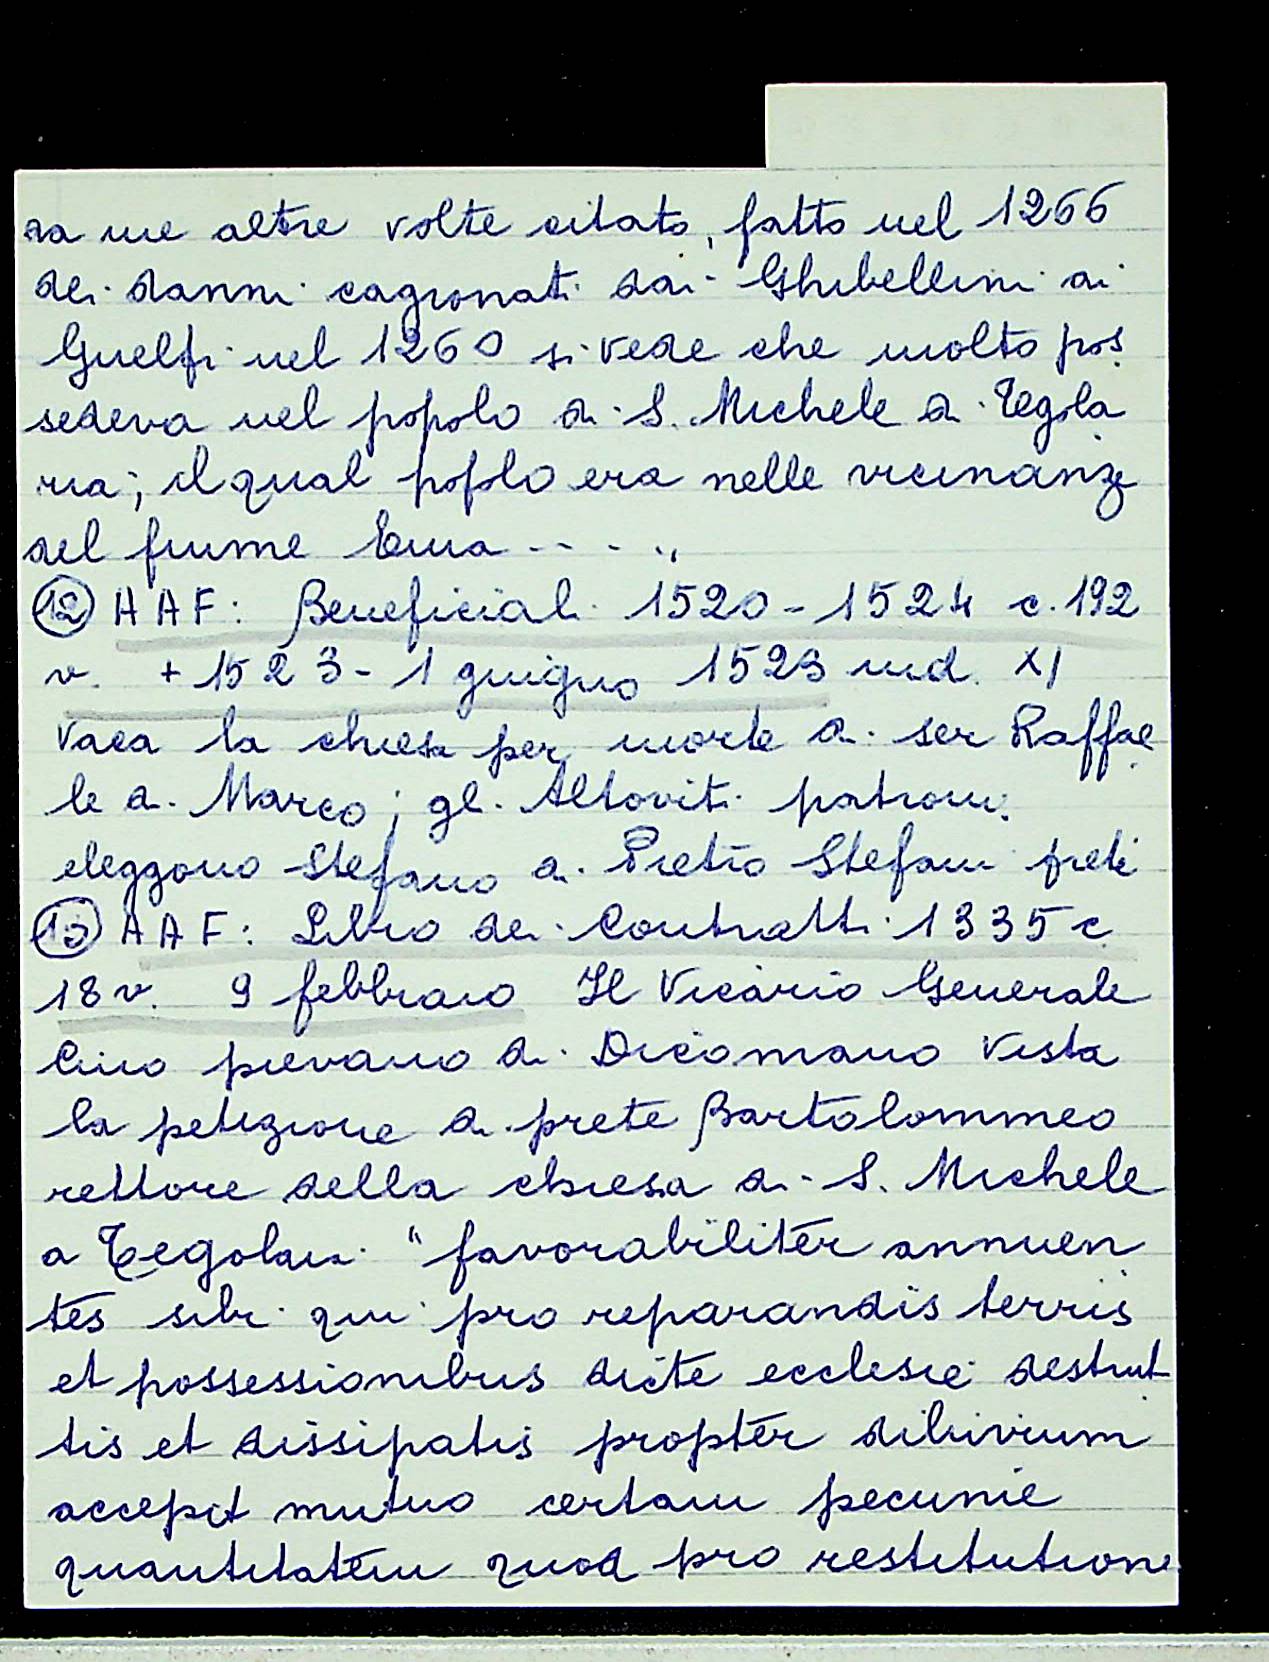 da me altre volte citato, fatto nel 1266
dei danni cagionati dai Ghibellini ai
Guelfi nel 1260 si vede che molto pos
sedeva nel popolo di S. Michele a Tegola
ria; il qual popolo era nelle vicinanze
del fiume Ema - - - .,
(12) AAF: Beneficiali 1520-1524 c. 192
v. + 1523 - 1 giugno 1523 ind. XI
Vaca la chiesa per morte di ser Raffae
le di Marco; gli Altoviti patroni
eleggono Stefano di Pietro Stefani preti
(13) AAF: Libro dei Contratti 1335 c
18 v. 9 febbraio Il Vicario Generale
Cino pievano di Dicomano Vista
la petizione di prete Bartolommeo
rettore della chiesa di S. Michele
a Tegolaia "favorabiliter annuen
tes sibi qui pro reparandis terris
et possessionibus dicte ecclesie destrut
tis et dissipatis propter diluvium
accepit mutuo certam pecunie
quantitatem quod pro restitutione